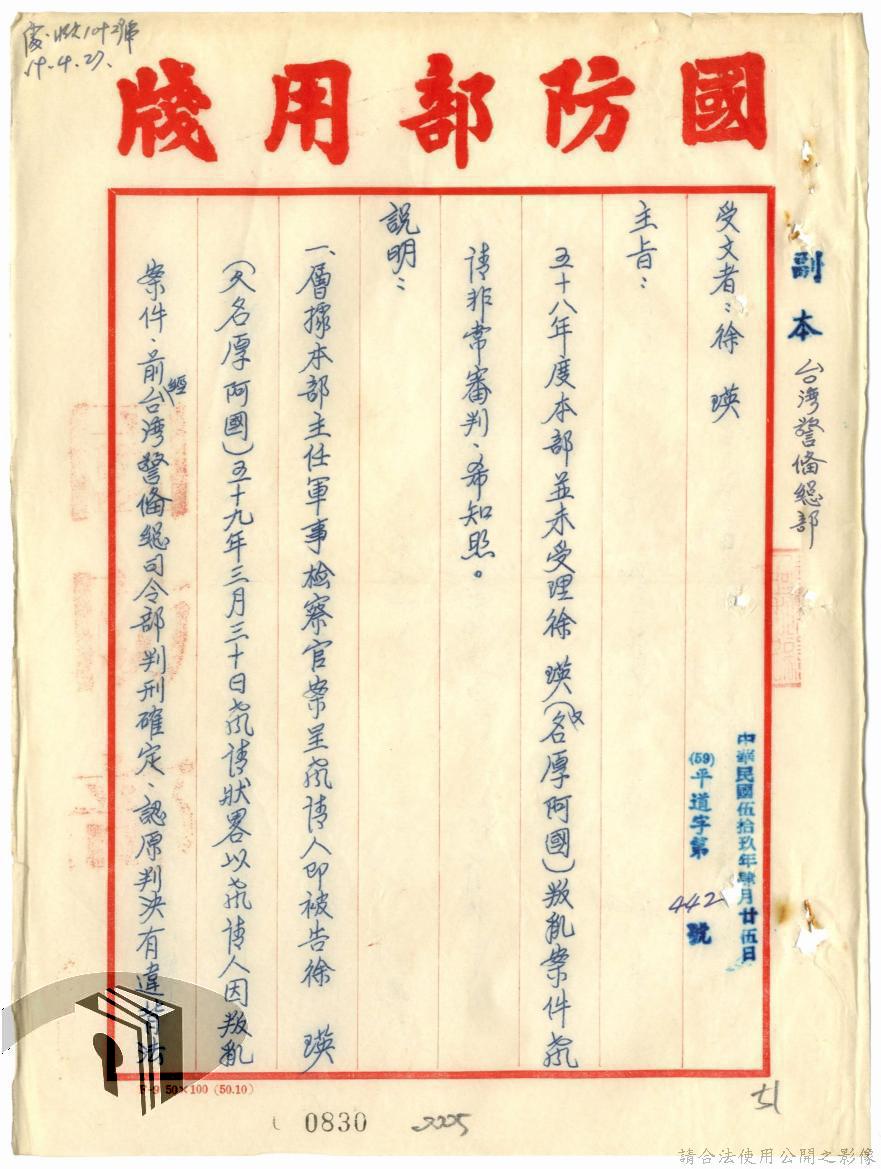 59.4.27.
國防部用牋
副本 台灣警備總部
中華民國伍拾玖年肆月廿伍日
(59)平道字第442號
受文者：徐　瑛
主旨：
五十八年度本部並未受理徐　瑛（又名厚阿國）叛亂案件聲
請非常審判、希知照。
說明：
一、層據本部主任軍事檢察官案呈聲請人即被告徐　瑛
（又名厚阿國）五十九年三月三十日聲請狀畧以聲請人因叛亂
案件、前經台灣警備總司令部判刑確定、認原判決有違背法
F-9 50×100 (50.10)
0830
51
請合法使用公開之影像